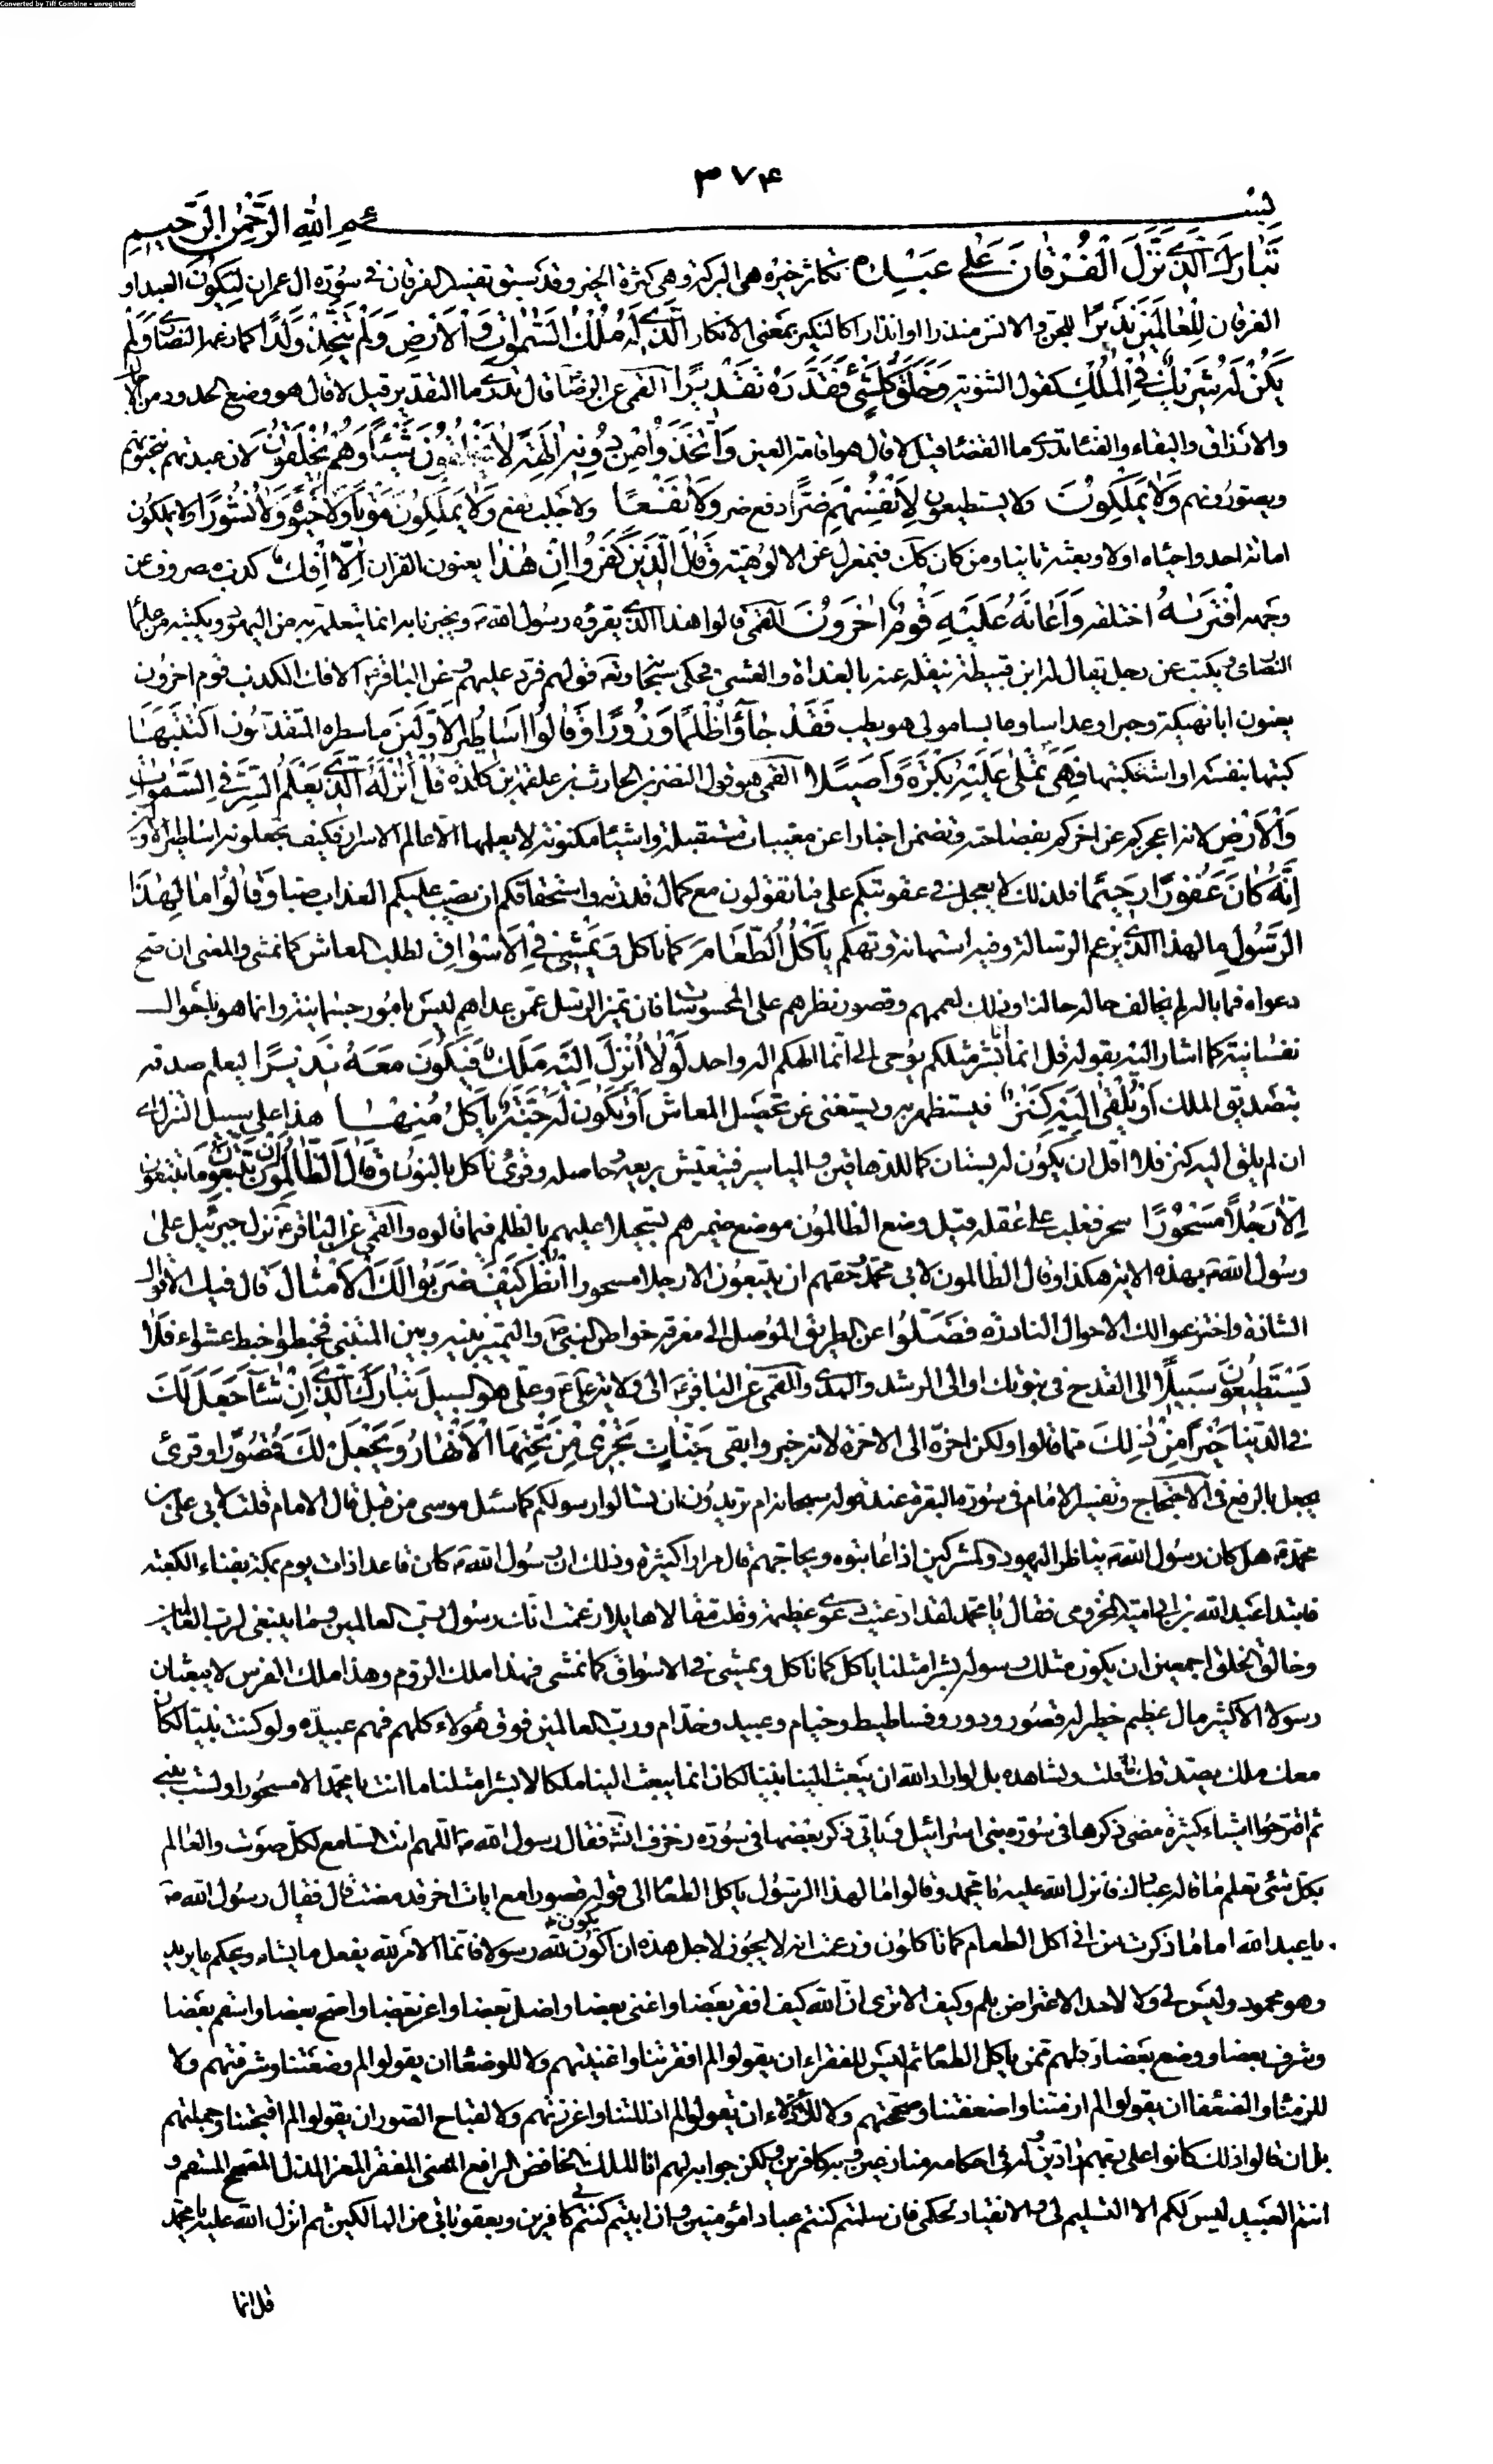 Converted by Tiff Combine - unregistered
۳۷۴
بسم الله الرحمن الرحيم
تبارك الذي نزل الفرقان على عبده تكاثر خيره من البركة وهي كثرة الخير وقد سبق تفسير الفرقان في سورة ال عمران ليكون العبد او
الفرقان للعالمين نذيرا للجن والانس منذرا او انذارا كالنكير بمعنى الانكار الذي له ملك السموات والارض ولم يتخذ ولدا كما زعمه النصارى ولم
يكن له شريك في الملك كقول الثنوية وخلق كل شئ فقدره تقديرا القمي عن الرضا قال تدري ما التقدير قيل لا قال هو وضع الحدود من الاجال
والارزاق والبقاء والفناء تدري ما القضاء قيل لا قال هو اقامة العين واتخذوا من دونه الهة لا يخلقون شيئا وهم يخلقون لان عبدتهم ينحتونهم
ويصورونهم ولا يملكون ولا يستطيعون لانفسهم ضرا دفع ضر ولا نفعا ولا جلب نفع ولا يملكون موتا ولا حيوة ولا نشورا ولا يملكون
اماتة احد واحياءه اولا وبعثه ثانيا ومن كان كك فبمعزل عن الالوهية وقال الذين كفروا ان هذا يعنون القران الا افك كذب مصروف عن
وجهه افتريه اختلقه واعانه عليه قوم اخرون القمي قالوا هذا الذي يقرؤه رسول الله ويخبرنا به انما يتعلمه من اليهود ويكتبه من علماء
النصارى ويكتب عن رجل يقال له ابن قبيطة ينقله عنه بالغداة والعشي فحكى سبحانه قولهم فرد عليهم وعن الباقر الافك الكذب قوم اخرون
يعنون ابا فهيكة وحبرا وعداسا وعابسا مولى حويطب فقد جاؤا ظلما وزورا وقالوا اساطير الاولين ما سطره المتقدمون اكتتبها
كتبها بنفسه او استكتبها فهي تملى عليه بكرة واصيلا القمي هو قول النضر بن الحارث بن علقمة بن كلدة قل انزله الذي يعلم السر في السموات
والارض لانه اعجزكم عن اخركم بفصاحته وتضمن اخبارا عن مغيبات مستقبلة واشياء مكنونة لا يعلمها الا عالم الاسرار فكيف تجعلونه اساطير الاولين
انه كان غفورا رحيما فلذلك لا يعجل في عقوبتكم على ما تقولون مع كمال قدرته واستحقاقكم ان يصب عليكم العذاب صبا وقالوا ما لهذا
الرسول ما لهذا الذي يزعم الرسالة وفيه استهانة وتهكم ياكل الطعام كما ناكل ويمشي في الاسواق لطلب المعاش كما نمشي والمعنى ان صح
دعواه فما باله لم يخالف حاله حالنا وذلك لعمههم وقصور نظرهم على المحسوسات فان تميز الرسل عمن عداهم ليس بامور جسمانية وانما هو باحوال
نفسانية كما اشار اليه بقوله قل انما انا بشر مثلكم يوحى الي انما الهكم اله واحد لولا انزل اليه ملك فيكون معه نذيرا ليعلم صدقه
بتصديق الملك او يلقى اليه كنز فيستظهر به ويستغني عن تحصيل المعاش او تكون له جنة ياكل منها هذا على سبيل التنزل اي
ان لم يلق اليه كنز فلا اقل ان يكون له بستان كما للدهاقين والمياسير فيتعيش بريعه حاصله وقرئ ناكل بالنون وقال الظالمون ان تتبعون ما تتبعون
الا رجلا مسحورا سحر فغلب على عقله قيل وضع الظالمون موضع ضميرهم تسجيلا عليهم بالظلم فيما قالوه والقمي عن الباقر نزل جبرئيل على
رسول الله بهذه الاية هكذا وقال الظالمون لال محمد حقهم ان يتبعون الا رجلا مسحورا انظر كيف ضربوا لك الامثال قال فيك الاقوال
الشاذة واخترعوا لك الاحوال النادرة فضلوا عن الطريق الموصل الى معرفة خواص النبي والتميز بينه وبين المتنبي فخبطوا خبط عشواء فلا
يستطيعون سبيلا الى القدح في نبوتك او الى الرشد والهدى والقمي عن الباقر الى ولاية علي وعلي هو السبيل تبارك الذي ان شاء جعل لك
في الدنيا خيرا من ذلك مما قالوا ولكن اخره الى الاخرة لانه خير وابقى جنات تجري من تحتها الانهار ويجعل لك قصورا وقرئ
يجعل بالرفع في الاحتجاج وتفسير الامام في سورة البقرة عند قوله سبحانه ام تريدون ان تسألوا رسولكم كما سئل موسى من قبل قال الامام قلت لابي علي بن
محمد هل كان رسول الله يناظر اليهود والمشركين اذا عاتبوه ويحاجهم قال مرارا كثيرة وذلك ان رسول الله كان قاعدا ذات يوم بمكة بفناء الكعبة
فابتدا عبد الله بن ابي امية المخزومي فقال يا محمد لقد ادعيت دعوى عظيمة وقلت مقالا هايلا زعمت انك رسول رب العالمين وما ينبغي لرب العالمين
وخالق الخلق اجمعين ان يكون مثلك رسوله بشرا مثلنا ياكل كما ناكل ويمشي في الاسواق كما نمشي فهذا ملك الروم وهذا ملك الفرس لا يبعثان
رسولا الا كثير مال عظيم خطير له قصور ودور وفساطيط وخيام وعبيد وخدام ورب العالمين فوق هؤلاء كلهم فهم عبيده ولو كنت نبيا لكان
معك ملك يصدقك ونشاهده بل لو اراد الله ان يبعث الينا نبيا لكان انما يبعث الينا ملكا لا بشرا مثلنا ما انت يا محمد الا مسحورا ولست بنبي
ثم اقترحوا اشياء كثيرة مضى ذكرها في سورة بني اسرائيل وياتي ذكر بعضها في سورة زخرف انشه فقال رسول الله اللهم انت السامع لكل صوت والعالم
بكل شئ تعلم ما قاله عبادك فانزل الله عليه يا محمد وقالوا ما لهذا الرسول ياكل الطعام الى قوله قصورا مع ايات اخر قد مضت قال فقال رسول الله
يا عبد الله اما ما ذكرت من اني اكل الطعام كما تاكلون وزعمت انه لا يجوز لاجل هذه ان اكون لله رسولا فانما الامر لله يفعل ما يشاء ويحكم ما يريد
وهو محمود وليس لي ولا لاحد الاعتراض بلم وكيف الا ترى ان الله كيف افقر بعضا واغنى بعضا واضل بعضا واعز بعضا واصح بعضا واسقم بعضا
وشرف بعضا ووضع بعضا وكلهم ممن ياكل الطعام ثم ليس للفقراء ان يقولوا لم افقرتنا واغنيتهم ولا للوضعاء ان يقولوا لم وضعتنا وشرفتهم ولا
للزمنى والضعفاء ان يقولوا لم ازمنتنا واضعفتنا وصححتهم ولا للاذلاء ان يقولوا لم اذللتنا واعززتهم ولا لقباح الصور ان يقولوا لم اقبحتنا وجملتهم
بل ان قالوا ذلك كانوا على ربهم رادين وله في احكامه منازعين وبه كافرين ولكن جوابه لهم انا الملك الخافض الرافع المغني المفقر المعز المذل المصحح المسقم و
انتم العبيد ليس لكم الا التسليم لي والانقياد لحكمي فان سلمتم كنتم عبادا مؤمنين وان ابيتم كنتم بي كافرين وبعقوباتي من الهالكين ثم انزل الله عليه يا محمد
قل انما